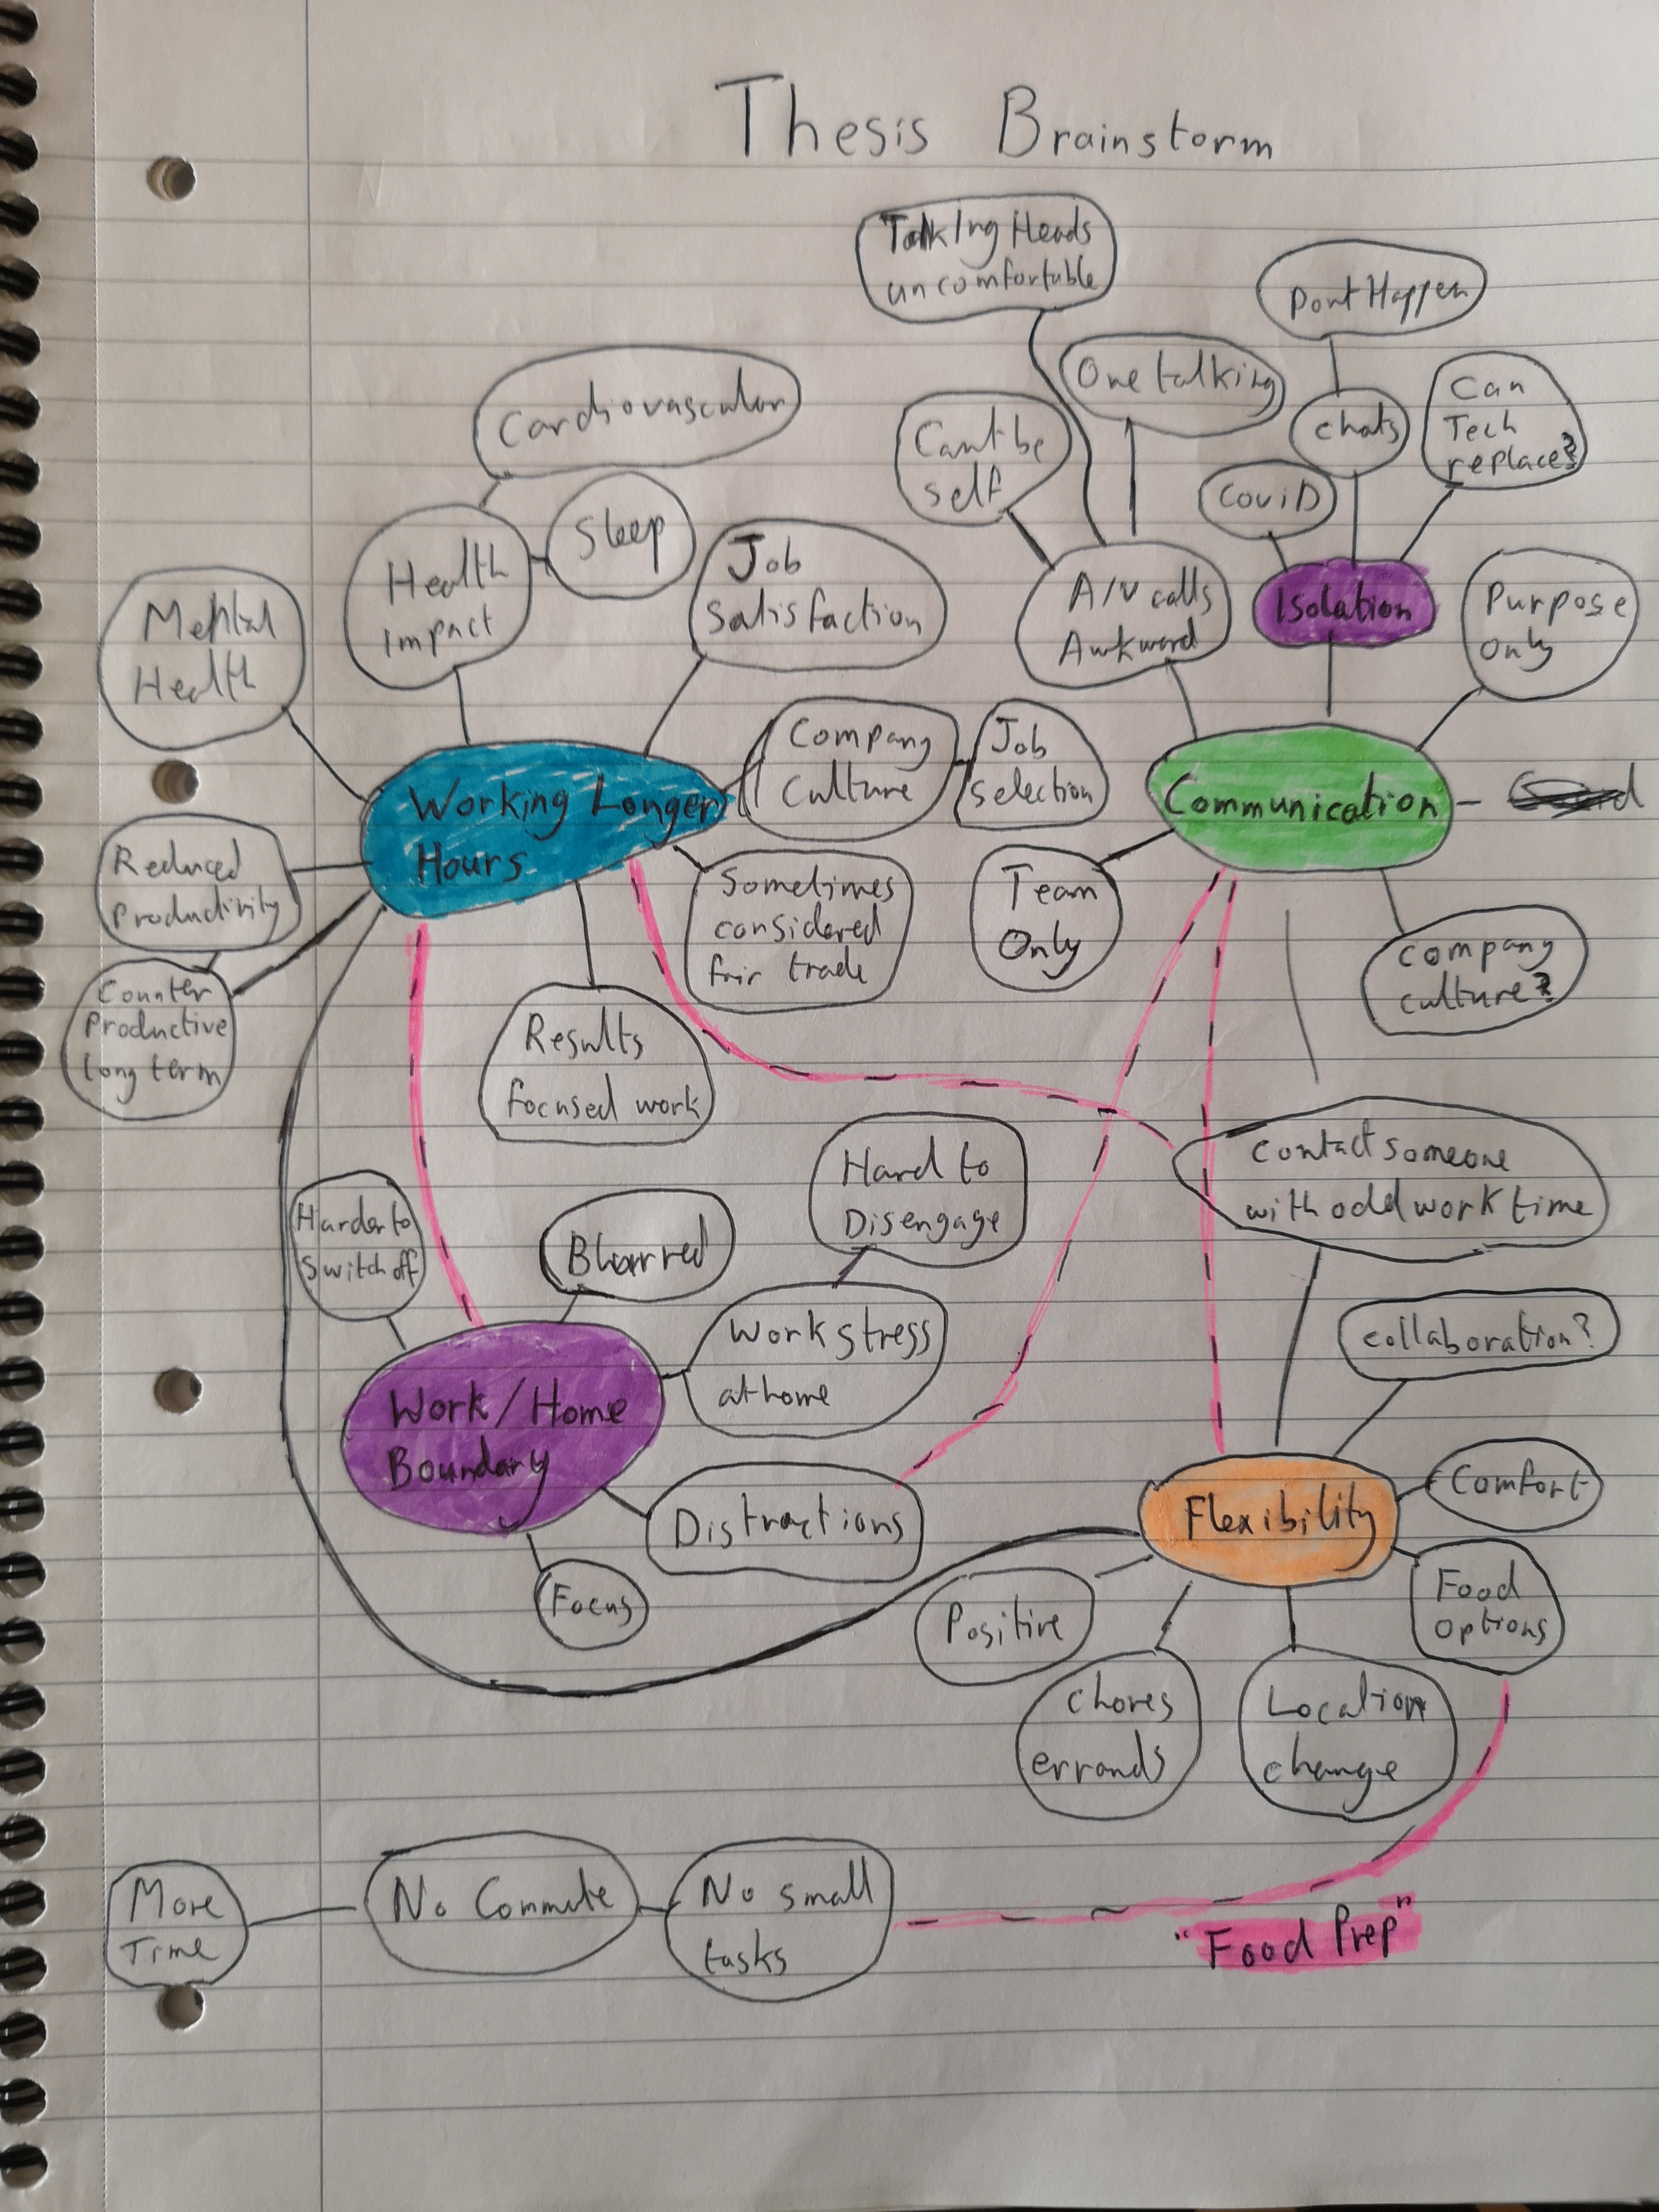 Thesis Brainstorm
Talking Heads
uncomfortable
Dont Happen
One talking
Can
Tech
replace?
chats
Cardiovascular
Cant be
self
Covid
Sleep
Health
Impact
Job
Satisfaction
A/V calls
Awkward
Isolation
Purpose
Only
Mental
Health
Company
Culture
Job
Selection
Working Longer
Hours
Communication
Reduced
Productivity
Sometimes
considered
fair trade
Team
Only
Company
culture?
Counter
Productive
long term
Results
focused work
Hard to
Disengage
Contact someone
with odd work time
Harder to
Switch off
Blurred
Work stress
at home
collaboration?
Work/Home
Boundary
Comfort
Distractions
Flexibility
Focus
Positive
Food
options
Chores
errands
Location
change
More
Time
No Commute
No small
tasks
"Food Prep"